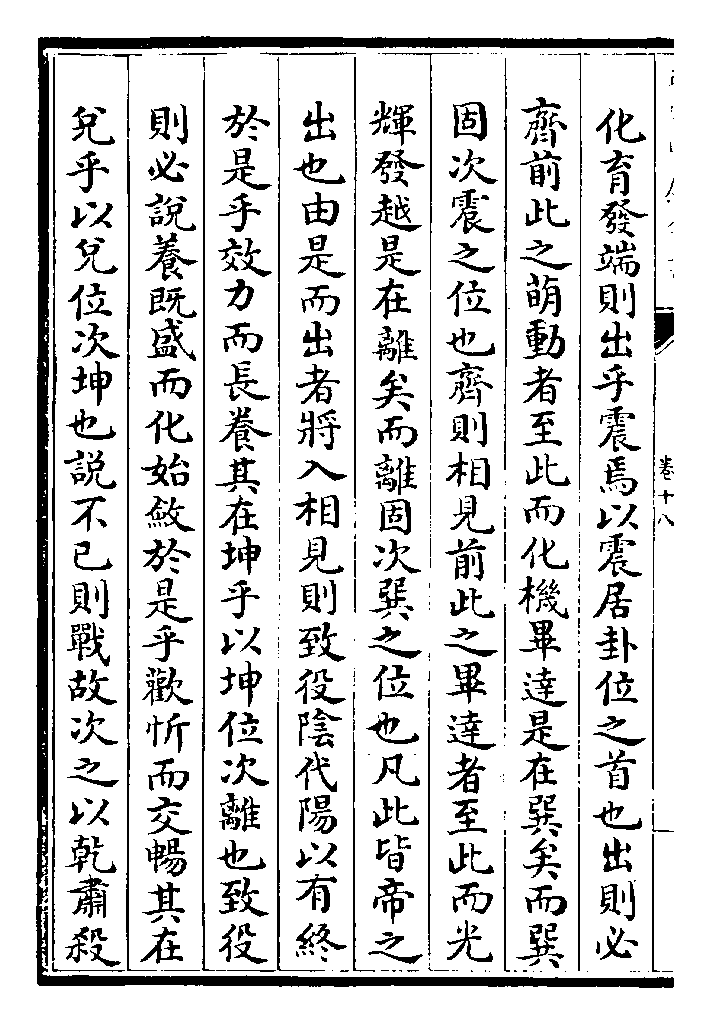 卷十八
化育發端則出乎震焉以震居卦位之首也出則必
齊前此之萌動者至此而化機畢達是在巽矣而巽
固次震之位也齊則相見前此之畢達者至此而光
輝發越是在離矣而離固次巽之位也凡此皆帝之
出也由是而出者將入相見則致役陰代陽以有終
於是乎效力而長養其在坤乎以坤位次離也致役
則必說養既盛而化始斂於是乎歡忻而交暢其在
兌乎以兌位次坤也說不已則戰故次之以乾肅殺